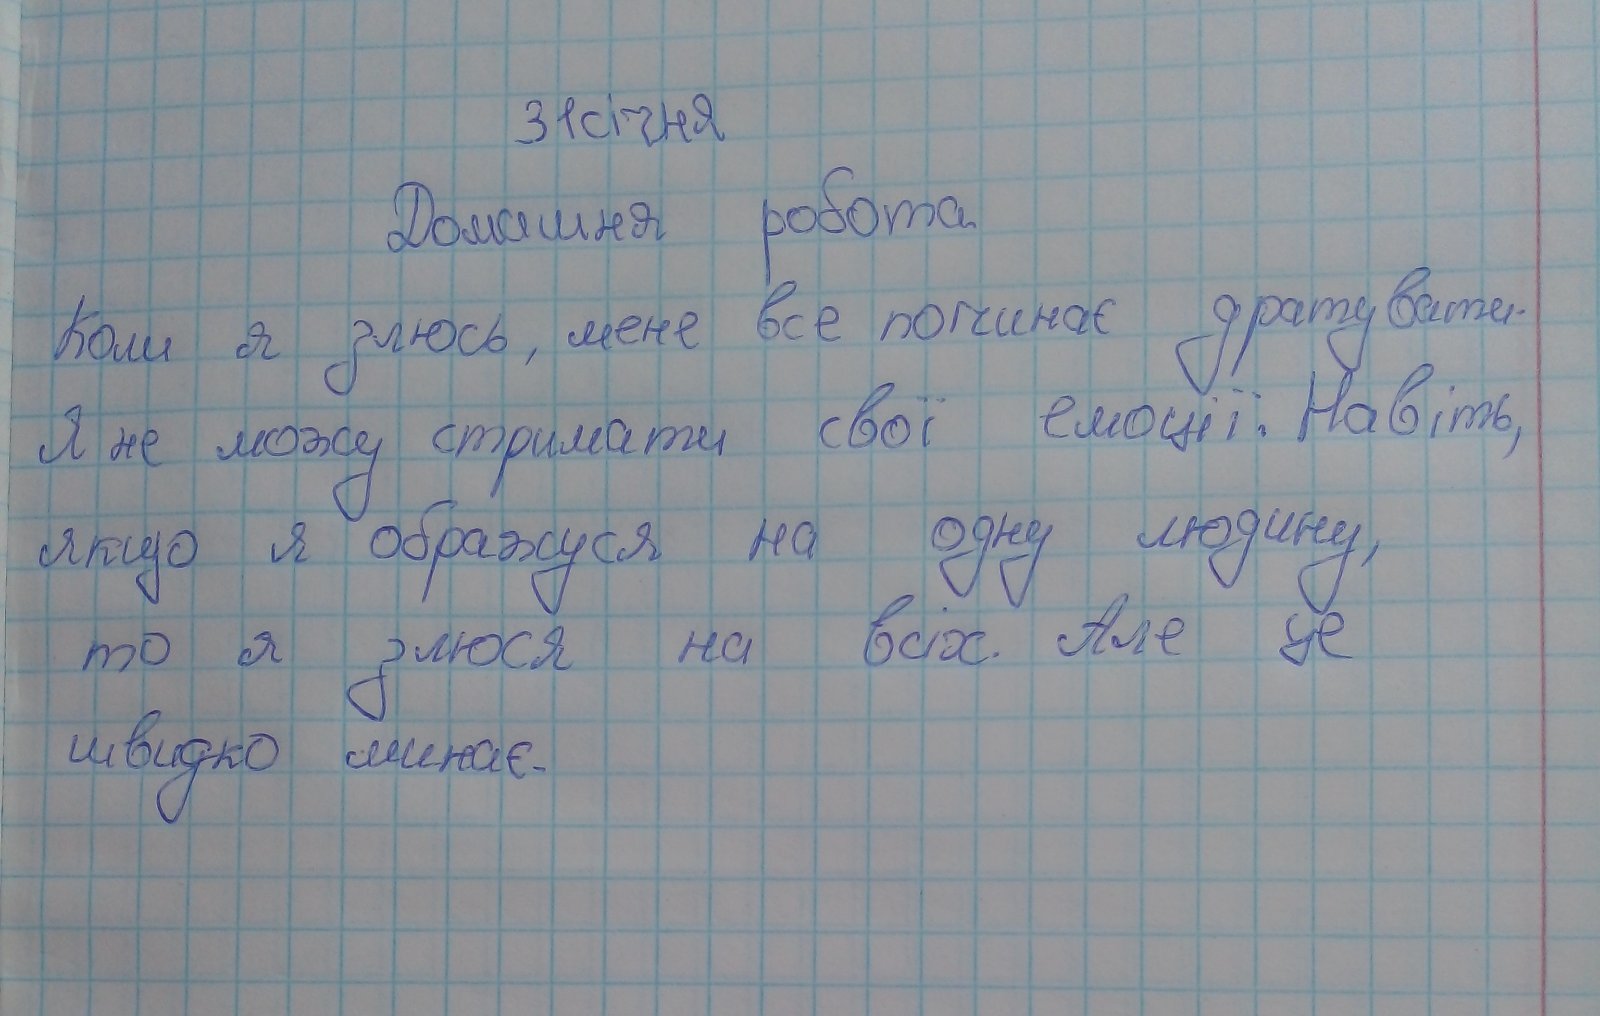 31січня
Домашня робота
Коли я злюсь, мене все починає дратувати.
Я не можу стримати свої емоції. Навіть,
якщо я ображуся на одну людину,
то я злюся на всіх. Але це
швидко минає.